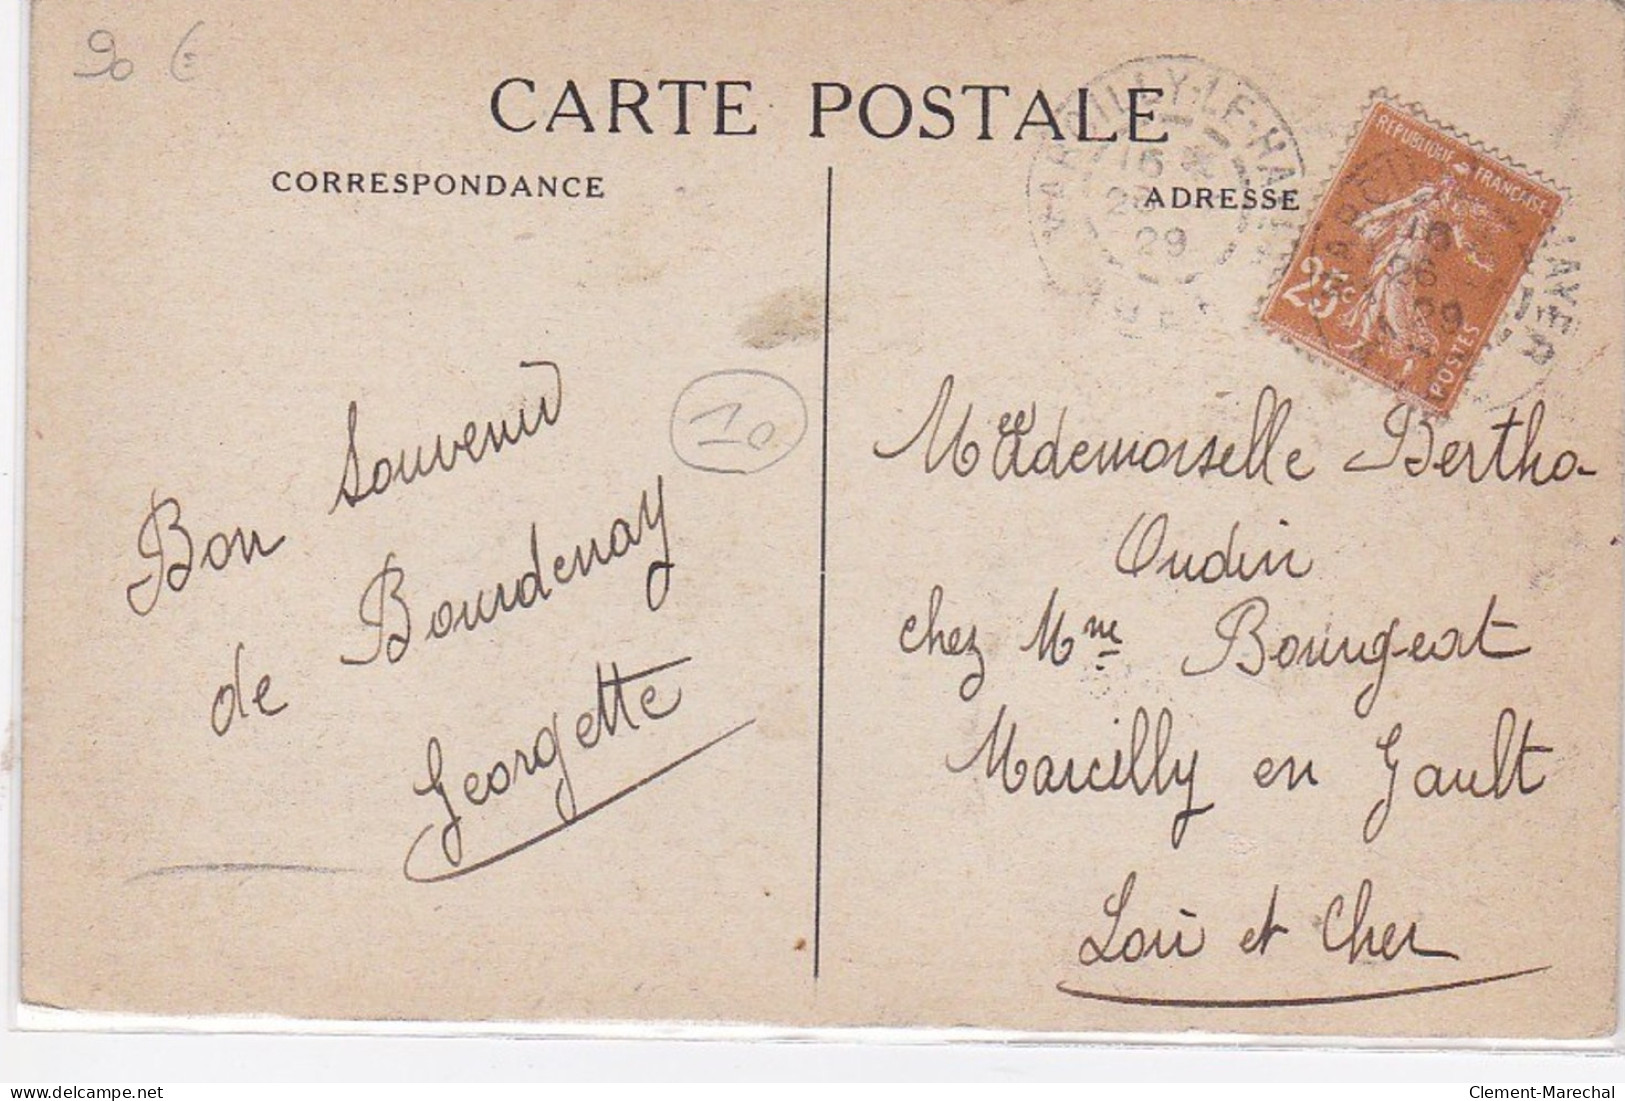 90 €
CARTE POSTALE
CORRESPONDANCE
ADRESSE
MARCILLY-LE-HAYER
16 *
29
AUBE
REPUBLIQUE FRANÇAISE
25c
POSTES
16
26
29
10
Bon Souvenir
de Bourdenay
Georgette
Mademoiselle Berthe
Oudin
chez Mme Bourgeot
Marcilly en Gault
Loir et Cher
delcampe.net
Clement-Marechal